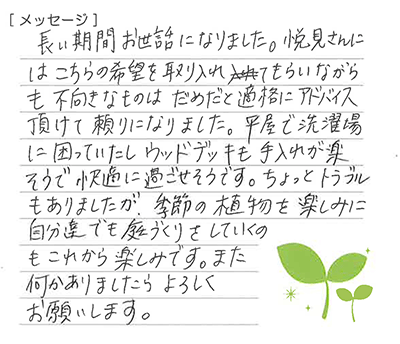 [メッセージ]
長い期間お世話になりました。悦見さんに
はこちらの希望を取り入れてもらいながら
も不向きなものはだめだと適格にアドバイス
頂けて頼りになりました。平屋で洗濯場
に困っていたしウッドデッキも手入れが楽
そうで快適に過ごせそうです。ちょっとトラブル
もありましたが、季節の植物を楽しみに
自分達でも庭づくりをしていくの
もこれから楽しみです。また
何かありましたらよろしく
お願いします。